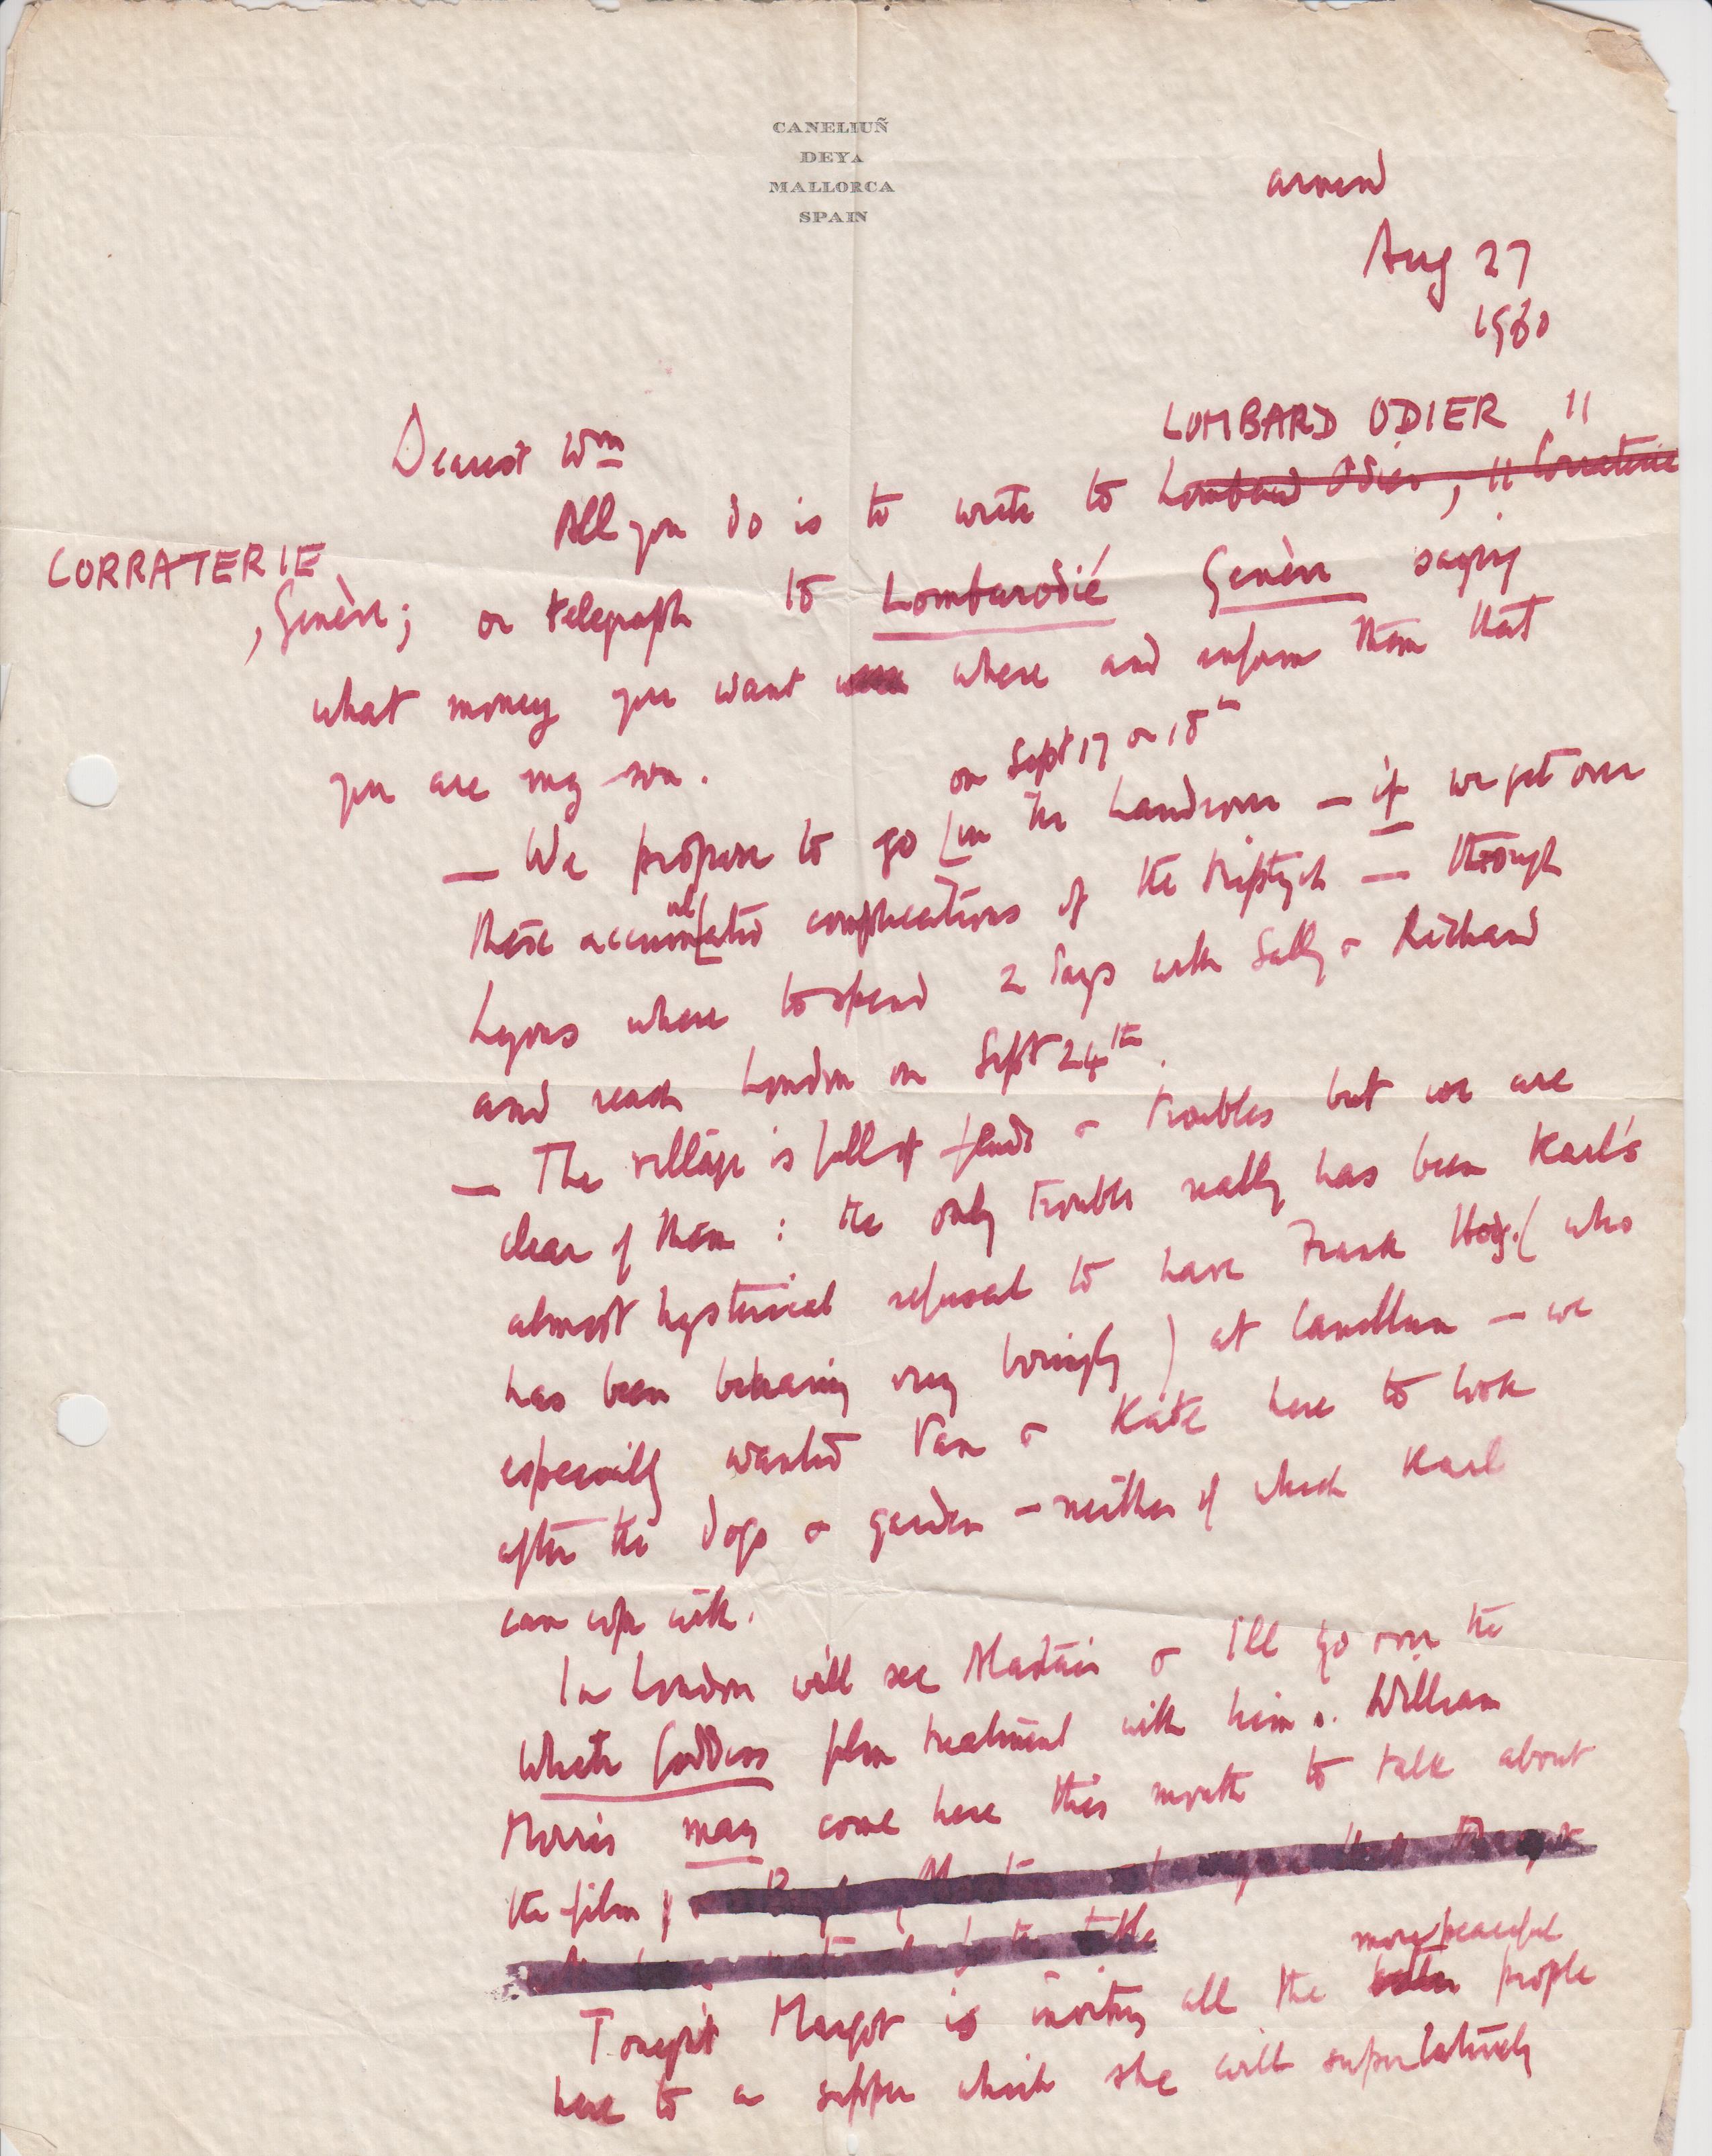 CANELIUÑ
DEYA
MALLORCA
SPAIN
Aug 27
1960
Dearest Wm
LOMBARD ODIER 11
All you do is to write to Lombard Odier, 11 Corraterie
CORRATERIE
, Genève; or telegraph to Lombarodié Genève saying
what money you want where and inform them that
you are my son.
on Sept 17 or 18th
— We propose to go in the Landrover — if we get over
these accumulated complications of the triptych — through
Lyons where to spend 2 days with Sally & Richard
and reach London on Sept 24th.
— The village is full of feuds & troubles but we are
clear of them: the only trouble really has been Karl's
almost hysterical refusal to have Frank (who
has been behaving very lovingly) at Canellun — we
especially wanted Van & Kate here to look
after the dogs & garden — neither of which Karl
can cope with.
In London will see Alastair & I'll go over the
White Goddess film treatment with him. William
Morris may come here this month to talk about
the film
more peaceful
Tonight Margot is inviting all the people
here to a supper which she will superlatively